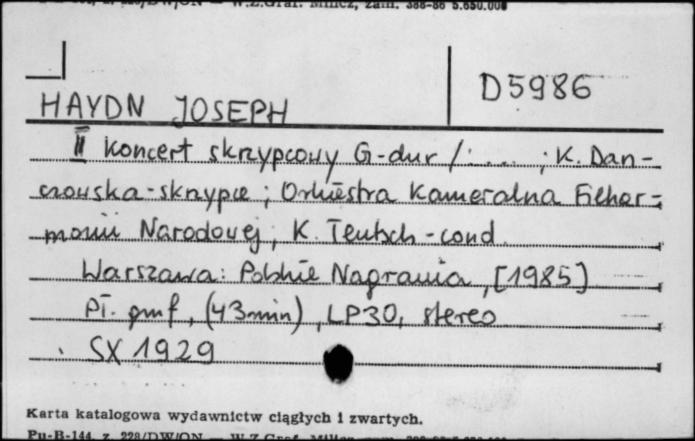 W.Z.Graf. Milicz, zam. 388-86 5.650.000
D5986
HAYDN JOSEPH
II koncert skrzypcowy G-dur /: .... ; K. Dan-
czowska-skrzypce ; Orkiestra Kameralna Filhar-
monii Narodowej, K. Teutsch - cond
Warszawa: Polskie Nagrania, [1985]
Pł. gmf, (43min), LP30, stereo
SX 1929
Karta katalogowa wydawnictw ciągłych i zwartych.
Pu-B-144, z. 228/DW/ON — W.Z.Graf. Milicz